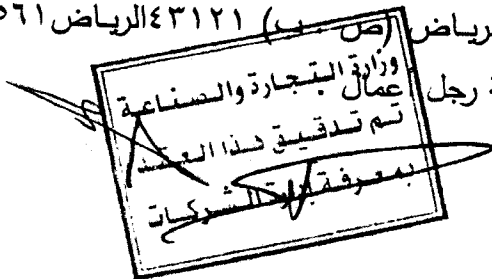 رياض (ص . ب) ٤٣١٢١ الرياض ٥٦١
رجل أعمال
وزارة التجارة والصناعة
تم تدقيق هذا العقد
بمعرفة إدارة الشركات